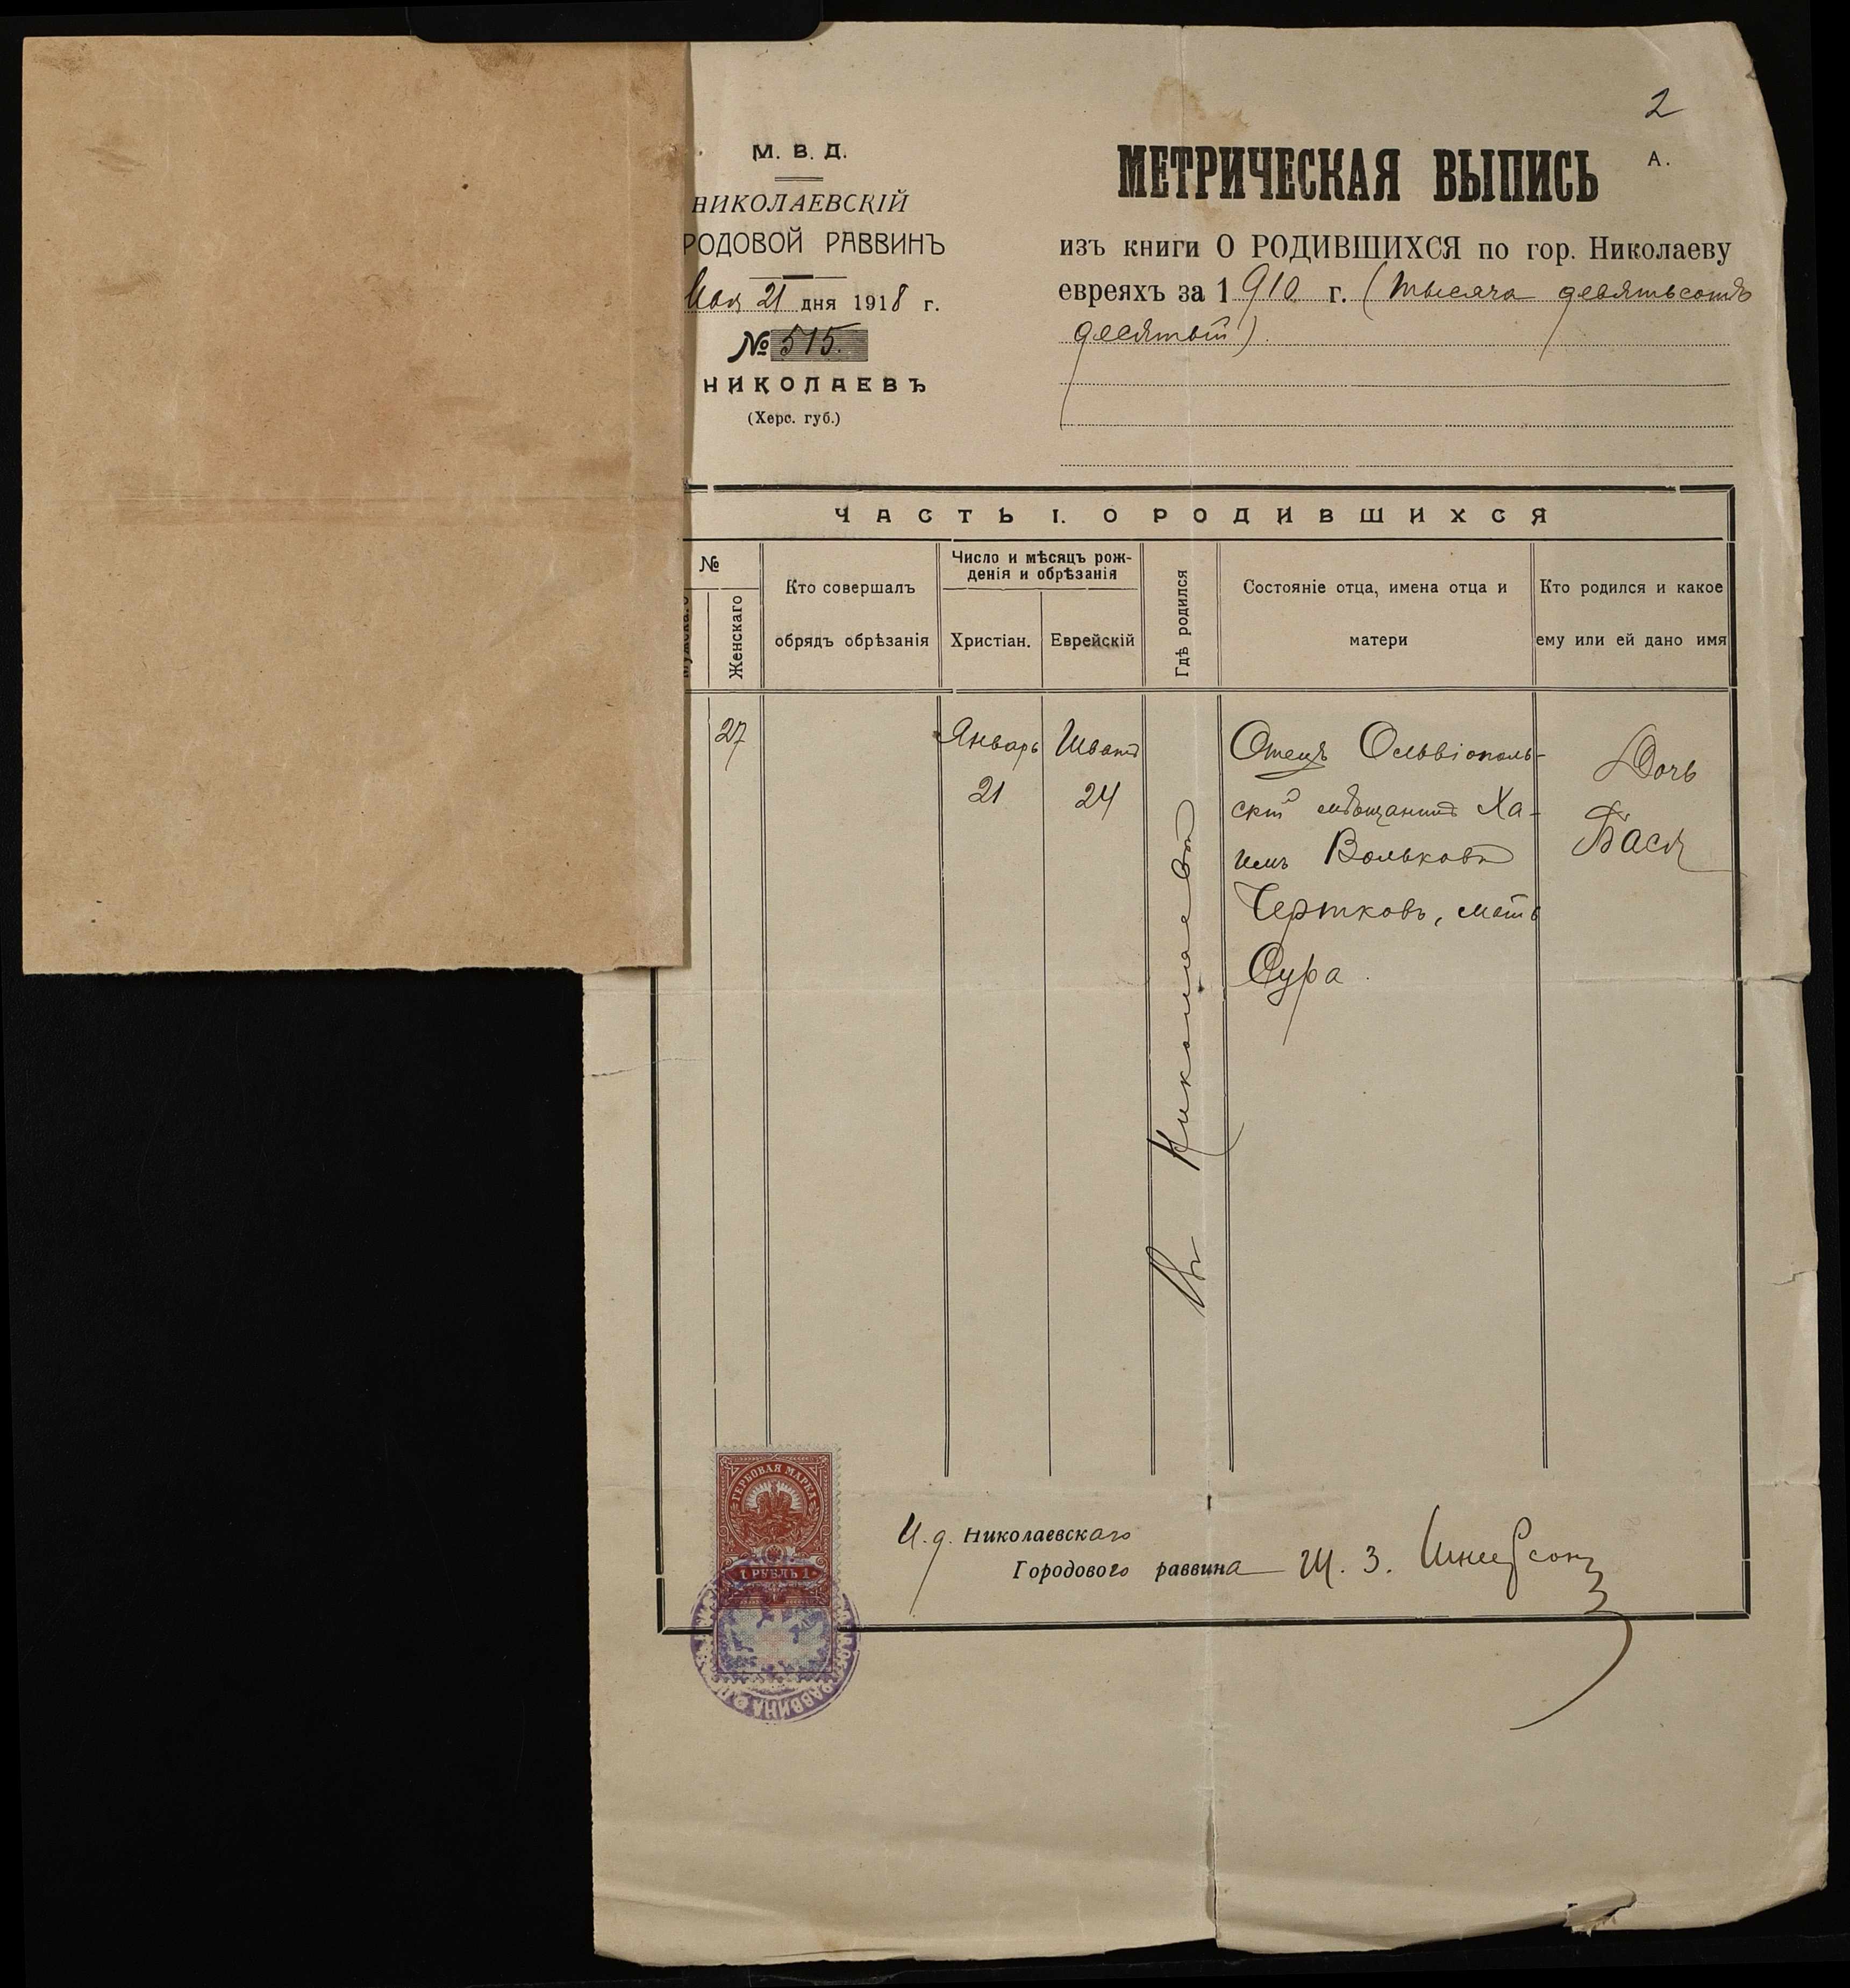 2
А.
М. В. Д.
НИКОЛАЕВСКІЙ
РОДОВОЙ РАВВИНЪ
Мая 21 дня 1918 г.
№ 515.
НИКОЛАЕВЪ
(Херс. губ.)
МЕТРИЧЕСКАЯ ВЫПИСЬ
изъ книги О РОДИВШИХСЯ по гор. Николаеву
евреяхъ за 1910 г. (тысяча девятьсотъ
десятый).
ЧАСТЬ I. О РОДИВШИХСЯ
№
Женскаго
Кто совершалъ
обрядъ обрѣзанія
Число и мѣсяцъ рож-
денія и обрѣзанія
Христіан.
Еврейскій
Гдѣ родился
Состояніе отца, имена отца и
матери
Кто родился и какое
ему или ей дано имя
27
Январь
21
Шватъ
24
Въ Николаевѣ
Отецъ Ольвіополь-
скій мѣщанинъ Ха-
имъ Вольковъ
Чертковъ, мать
Сура.
Дочь
Бася
ГЕРБОВАЯ МАРКА
1 РУБЛЬ 1
РАВВИНА
И. д. Николаевскаго
Городового раввина Ш. З. Шнеерсонъ